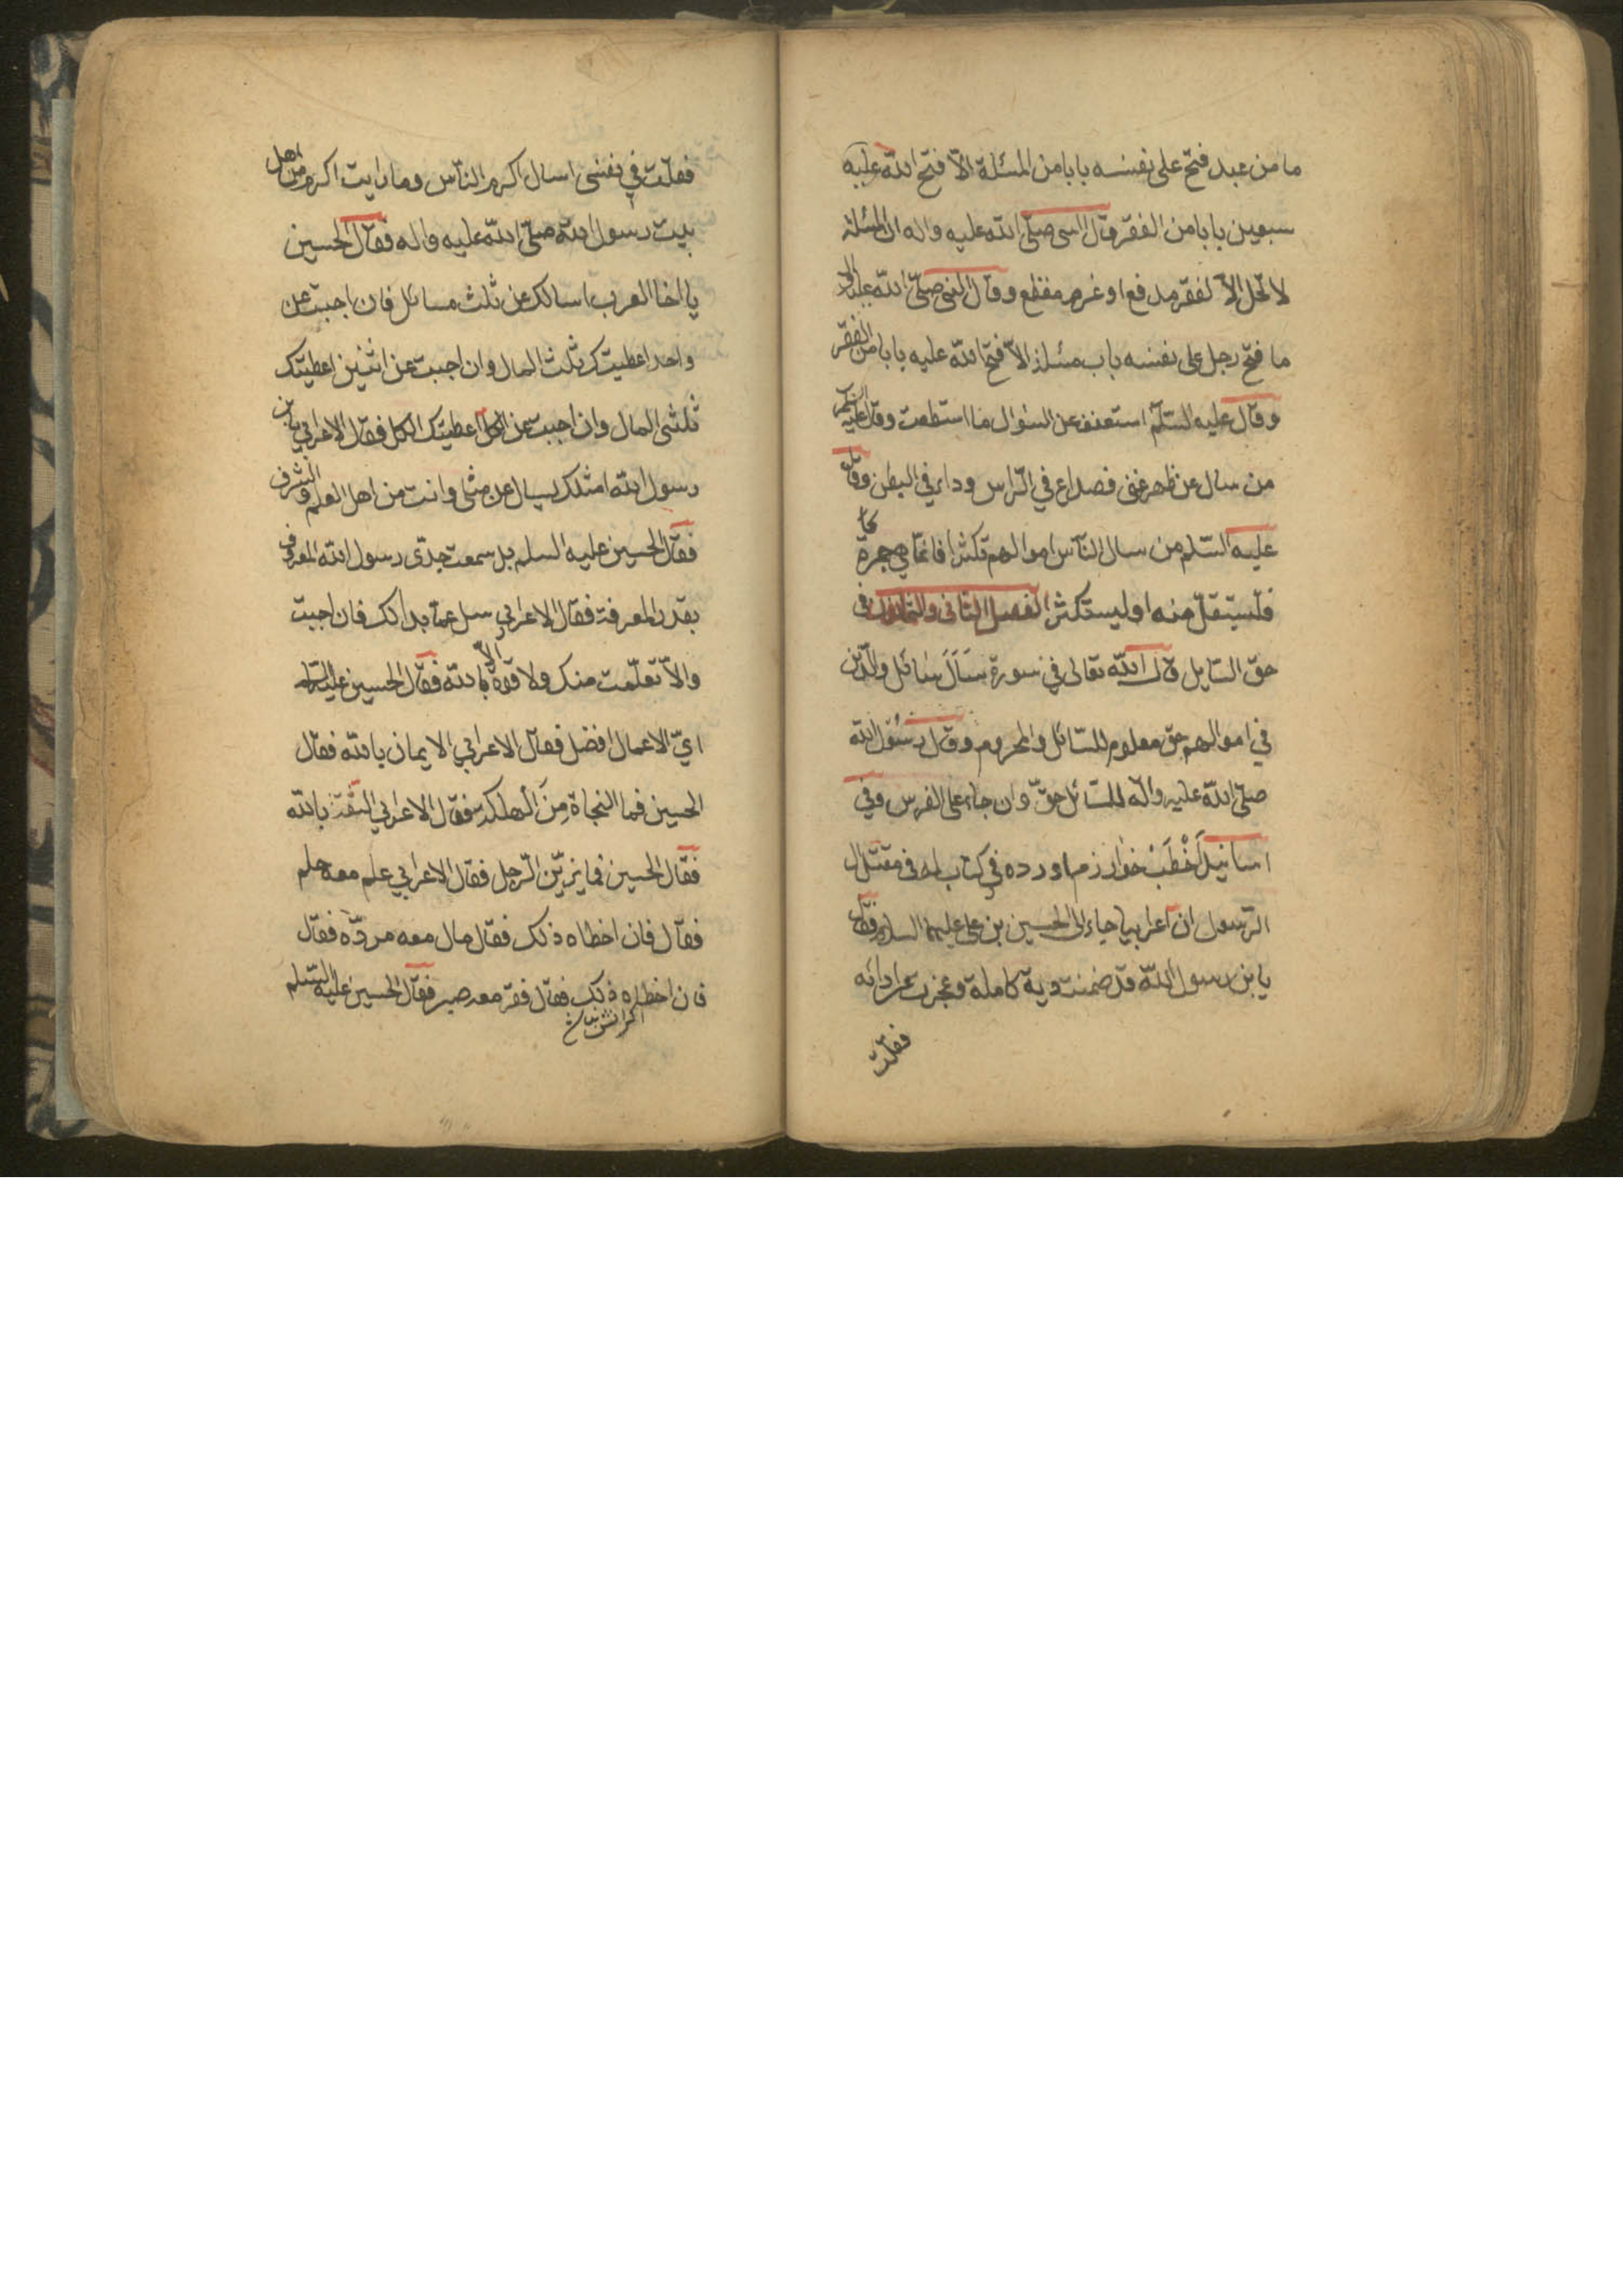 ما من عبد فتح على نفسه بابا من المسئلة الّا فتح الله عليه
سبعين بابا من الفقر وقال النبى صلّى الله عليه واله ان المسئلة
لا تحل الّا لفقر مدقع او غرم مفظع وقال النبى صلّى الله عليه واله
ما فتح رجل على نفسه باب مسئلة الّا فتح الله عليه بابا من الفقر
وقال عليه السّلم استعفف عن السّؤال ما استطعت وقال عليه السّلم
من سال عن ظهر غنى فصداع في الرّاس وداء في البطن وقال
عليه السّلم من سال النّاس اموالهم تكثرا فانما هي جمرة
فليستقلّ منه او ليستكثر الفصل الثانى والثمانون فى
حق السّايل قال الله تعالى في سورة سَأَلَ سَائل والّذين
في اموالهم حق معلوم للسّائل والمحروم وقال رسُول الله
صلّى الله عليه واله للسّائل حقّ وان جاء على الفرس وفي
اسانيد أَخْطَبْ خوارزم اورده في كتاب له فى مقتل ال
الرّسول ان اعرابيا جاء الى الحسين بن على عليهما السلم فقال
يا بن رسول الله قد ضمنت دية كاملة وعجزت عن ادائه
فقلت
فقلت في نفسى اسال اكرم النّاس وما رايت اكرم من اهل
بيت رسول الله صلّى الله عليه واله فقال الحسين
يا اخا العرب اسالك عن ثلث مسائل فان اجبت عن
واحد اعطيتك ثلث المال وان اجبت عن اثنين اعطيتك
ثلثى المال وان اجبت عن الكل اعطيتك الكل فقال الاعرابي يا بن
رسول الله امثلك يسال عن مثلى وانت من اهل العلم والشرف
فقال الحسين عليه السلم بل سمعت جدّى رسول الله المعروف
بقدر المعرفة فقال الاعرابي سل عمّا بدا لك فان اجبت
والّا تعلّمت منك ولا قوّة الّا بالله فقال الحسين عليه السلم
ايّ الاعمال افضل فقال الاعرابي الايمان بالله فقال
الحسين فما النجاة مِنَ الهلكة فقال الاعرابي الثقة بالله
فقال الحسين فما يزيّن الرّجل فقال الاعرابي علم معه حلم
فقال فان اخطاه ذلك فقال مال معه مروّه فقال
فان اخطاه ذلك فقال فقر معه صبر فقال الحسين عليه السّلم